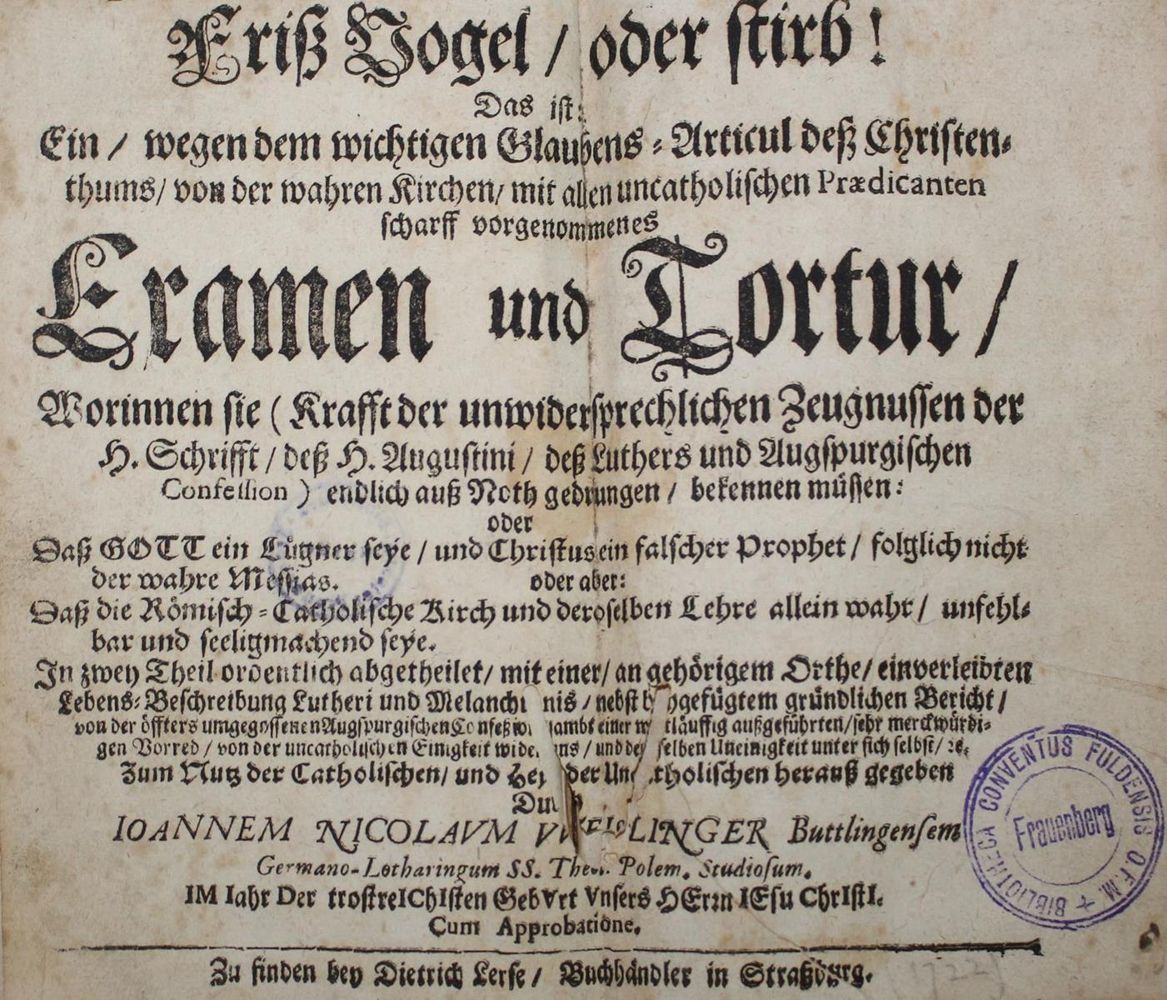 Friß Vogel / oder stirb!
Das ist:
Ein / wegen dem wichtigen Glaubens-Articul deß Christen-
thums / von der wahren Kirchen / mit allen uncatholischen Prædicanten
scharff vorgenommenes
Examen und Tortur /
Worinnen sie (Krafft der unwidersprechlichen Zeugnussen der
H. Schrifft / deß H. Augustini / deß Luthers und Augspurgischen
Confession) endlich auß Noth gedrungen / bekennen müssen:
oder
Daß GOTT ein Lügner seye / und Christus ein falscher Prophet / folglich nicht
der wahre Messias. oder aber:
Daß die Römisch-Catholische Kirch und deroselben Lehre allein wahr / unfehl-
bar und seeligmachend seye.
In zwey Theil ordentlich abgetheilet / mit einer / an gehörigem Orthe / einverleibten
Lebens-Beschreibung Lutheri und / nebst gründlichen Bericht /
von der öffters umgegossenen Augspurgischen einer außgeführten / sehr merckwürdi-
gen Vorred / von der uncatholischen Einigkeit / und selben Uneinigkeit unter sich selbst / ꝛc.
Zum Nutz der Catholischen / und der herauß gegeben
IOANNEM NICOLAVM Buttlingensem
Germano-Lotharingum SS. Polem. Studiosum.
IM Iahr Der trostreIChIsten GebVrt Vnsers HErrn IEsu ChrIstI.
Cum Approbatione.
Zu finden bey Dietrich Lerse / Buchhändler in Straßburg.
BIBLIOTHECA CONVENTUS FULDENSIS O.F.M.
Frauenberg